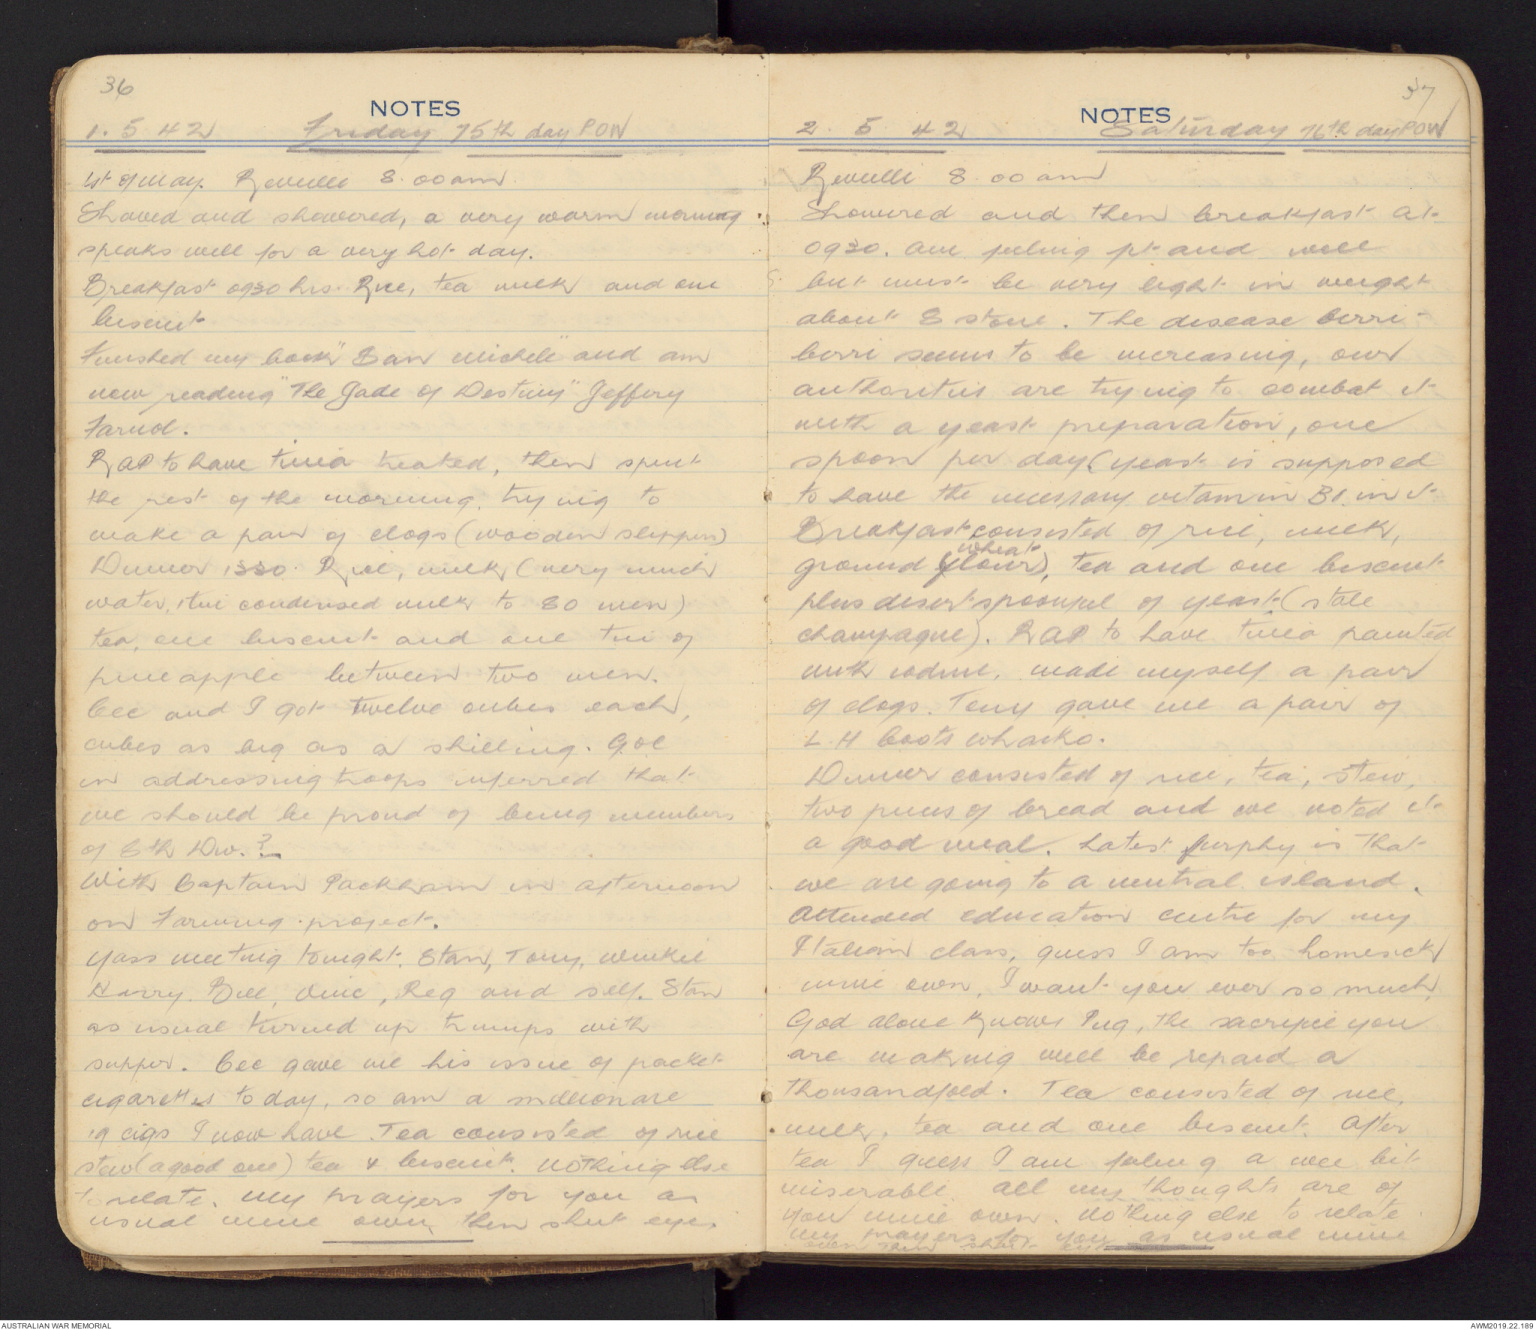 36
NOTES
1. 5 42 Friday 75th day POW
1st of May. Reveille 8.00am
Shaved and showered, a very warm morning
speaks well for a very hot day.
Breakfast 0930 hrs. Rice, tea milk and one
biscuit
Finished my book "San Michele" and am
now reading "The Jade of Destiny" Jeffery
Farnol.
RAP to have tinia treated, then spent
the rest of the morning trying to
make a pair of clogs (wooden slippers)
Dinner 1330. Rice, milk (very much
water, 1 tin condensed milk to 80 men)
tea, one biscuit and one tin of
pineapple between two men.
Cec and I got twelve cubes each,
cubes as big as a shilling. GOC
in addressing troops inferred that
we should be proud of being members
of 8th Div.?
With Captain Packham in afternoon
on Farming project.
Yass meeting tonight. Stan, Tony, Winkie
Harry, Bill, Vine, Reg and self. Stan
as usual turned up trumps with
supper. Cec gave me his issue of packet
cigarettes today, so am a millionare
19 cigs I now have. Tea consisted of rice
stew (a good one) tea & biscuit. Nothing else
to relate. My prayers for you as
usual mine own, then shut eye.
37
NOTES
2 5 42 Saturday 76th day POW
Reveille 8.00am
Showered and then breakfast at
0930. Am feeling fit and well
but must be very light in weight
about 8 stone. The disease berri-
berri seems to be increasing, our
authorities are trying to combat it
with a yeast preparation, one
spoon per day (yeast is supposed
to have the necessary vitamin B1 in it
Breakfast consisted of rice, milk,
wheat
ground (flour), tea and one biscuit
plus desert spoonful of yeast (stale
champagne). RAP to have tinia painted
with iodine, made myself a pair
of clogs. Tony gave me a pair of
L.H boots whacko.
Dinner consisted of rice, tea, stew,
two pieces of bread and we voted it
a good meal. Latest furphy is that
we are going to a neutral island.
Attended education centre for my
Italian class, guess I am too homesick
mine own, I want you ever so much,
God alone knows Pug, the sacrifice you
are making will be repaid a
thousandfold. Tea consisted of rice,
milk, tea and one biscuit. After
tea I guess I am feeling a wee bit
miserable. All my thoughts are of
you mine own. Nothing else to relate
my prayers for you as usual mine
own then shut eye
AUSTRALIAN WAR MEMORIAL
AWM2019.22.189